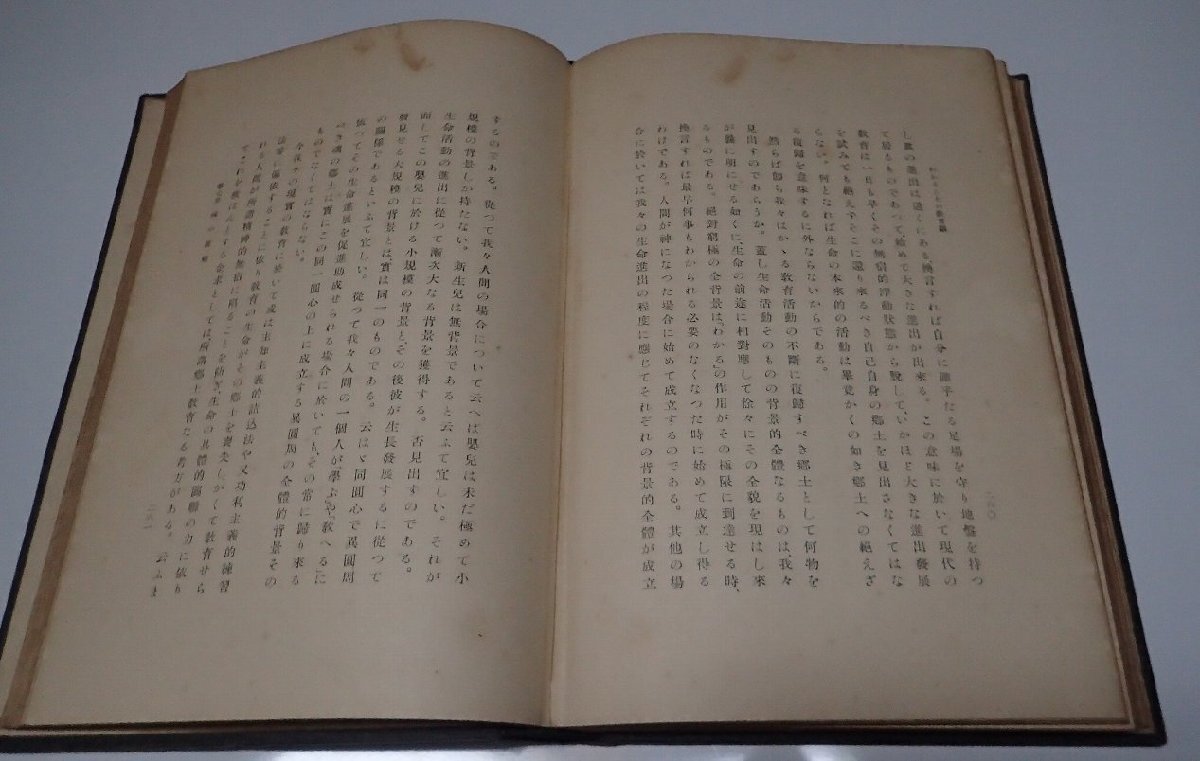 し世の進出は遠くにある。換言すれば自分に確乎たる足場を守り地盤を持つ
て居るものであつて、始めて大きな進出が出來る。この意味に於いて現代の
敎育は一日も早くその無窮的浮動狀態から脫して、いかほど大きな進出發展
を試みても絕えずそこに還り來るべき自己自身の鄕土を見出さなくてはな
らない。何となれば生命の本來的の活動は畢竟かくの如き鄕土への絕えざ
る復歸を意味するに外ならないからである。
然らば飜つて我々はかゝる敎育活動の不斷に復歸すべき鄕土として何物を
見出すのであらうか。蓋し生命活動そのものの背景的全體なるものは、我々
が旣に明にせる如くに、生命の前途に相對應して徐々にその全貌を現はし來
るものである。絕對窮極の全背景は、「わかる」の作用がその極限に到達せる時、
換言すれば最早何事もわかられる必要のなくなつた時に始めて成立し得る
わけである。人間が神になつた場合に始めて成立するのである。其他の場
合に於いては我々の生命進出の程度に應じてそれぞれの背景的全體が成立
二八〇
するのである。從つて我々人間の場合について云へば嬰兒は未だ極めて小
規模の背景しか持たない。新生兒は無背景であると云ふて宜しい。それが
生命活動の進出に從つて漸次大なる背景を獲得する。否見出すのである。
而してこの嬰兒に於ける小規模の背景と、その後彼が生長發展するに從つて
發見せる大規模の背景とは、實は同一のものである。云はゞ同圓心で異圓周
の關係であるといふて宜しい。從つて我々人間の一個人が學ぶや敎へるに
依つてその生命進展を促進助成せられる場合に於いても、その常に歸り來る
べき魂の鄕土は實にこの同一圓心の上に成立する異圓周の全體的背景その
ものでなくてはならない。
今我々の現實の敎育に於いて或は主知主義的詰込法や又功利主義的練習
法等に偏依することに依り敎育の生命がその鄕土を喪失しかくて敎育せら
れる人間が所謂精神的無宿に陷ることを防ぎ生命の具體的關聯の力に依り
二八一